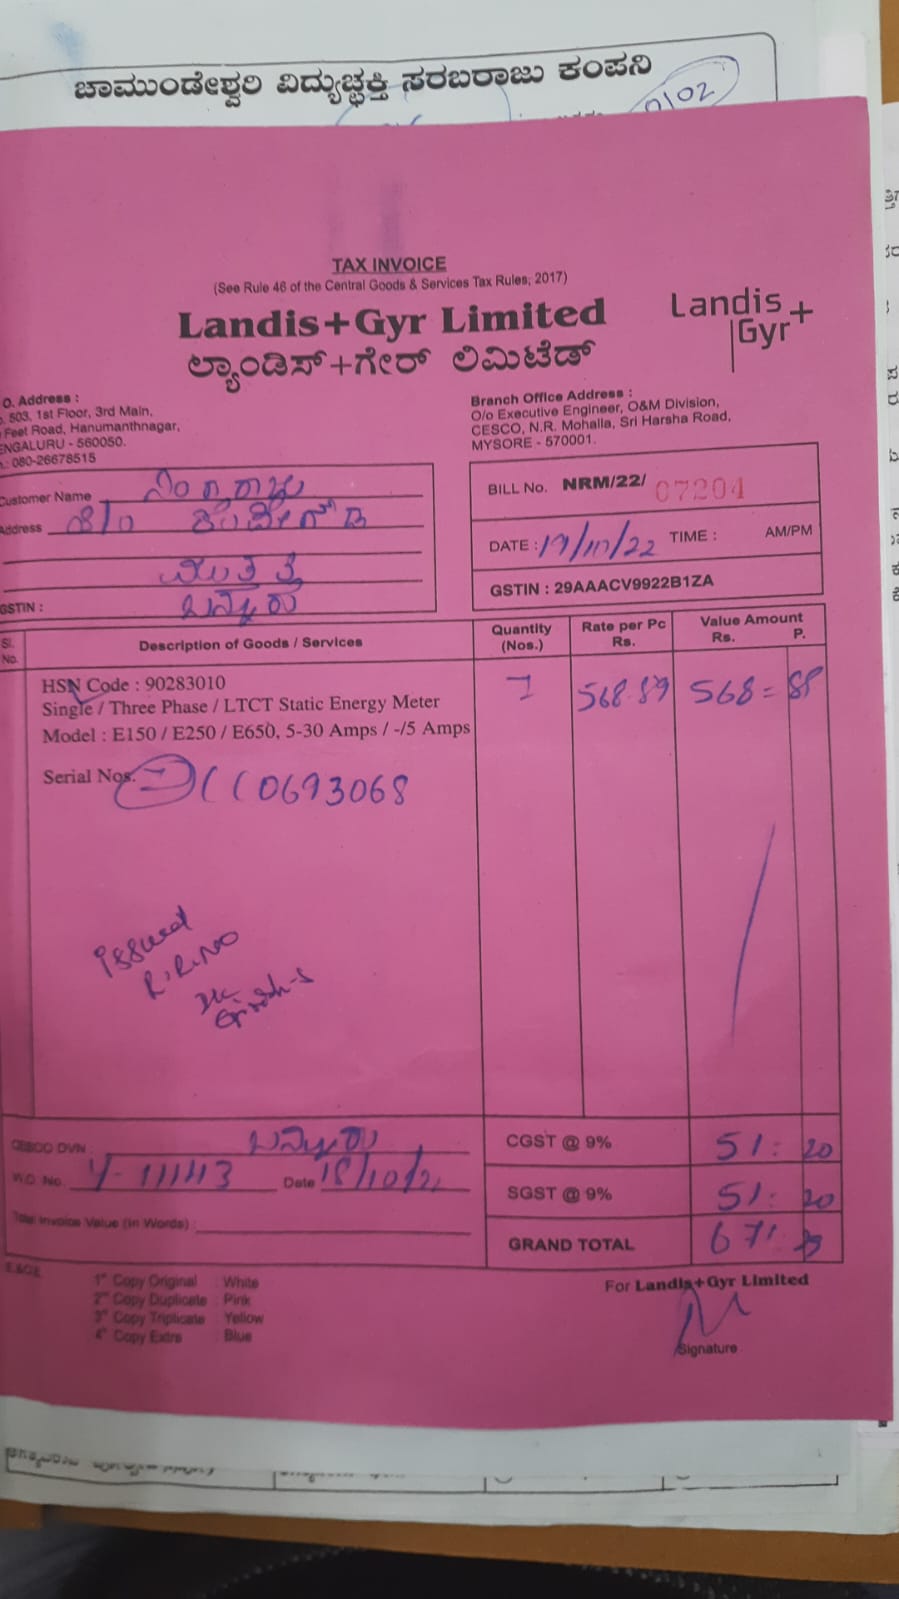 ಚಾಮುಂಡೇಶ್ವರಿ ವಿದ್ಯುಚ್ಛಕ್ತಿ ಸರಬರಾಜು ಕಂಪನಿ
TAX INVOICE
(See Rule 46 of the Central Goods & Services Tax Rules, 2017)
Landis+Gyr Limited
ಲ್ಯಾಂಡಿಸ್+ಗೇರ್ ಲಿಮಿಟೆಡ್
Landis+
Gyr
O. Address :
503, 1st Floor, 3rd Main,
Feet Road, Hanumanthnagar,
ENGALURU - 560050.
080-26678515
Branch Office Address :
O/o Executive Engineer, O&M Division,
CESCO, N.R. Mohalla, Sri Harsha Road,
MYSORE - 570001.
Customer Name
Address
ಬನ್ನೂರು
GSTIN :
BILL No. NRM/22/ 07204
DATE : 19/10/22 TIME : AM/PM
GSTIN : 29AAACV9922B1ZA
Sl. No. Description of Goods / Services Quantity (Nos.) Rate per Pc Rs. Value Amount Rs. P.
HSN Code : 90283010
Single / Three Phase / LTCT Static Energy Meter 1 568.89 568=
Model : E150 / E250 / E650, 5-30 Amps / -/5 Amps
Serial Nos. 0693068
issued
R.R.NO
CESCO DVN : ಬನ್ನೂರು
W.O. No. Y-11143 Date 18/10/2
Total Invoice Value (in Words) :
CGST @ 9% 51: 20
SGST @ 9% 51: 20
GRAND TOTAL 671:
E&OE
1st Copy Original : White
2nd Copy Duplicate : Pink
3rd Copy Triplicate : Yellow
4th Copy Extra : Blue
For Landis+Gyr Limited
Signature